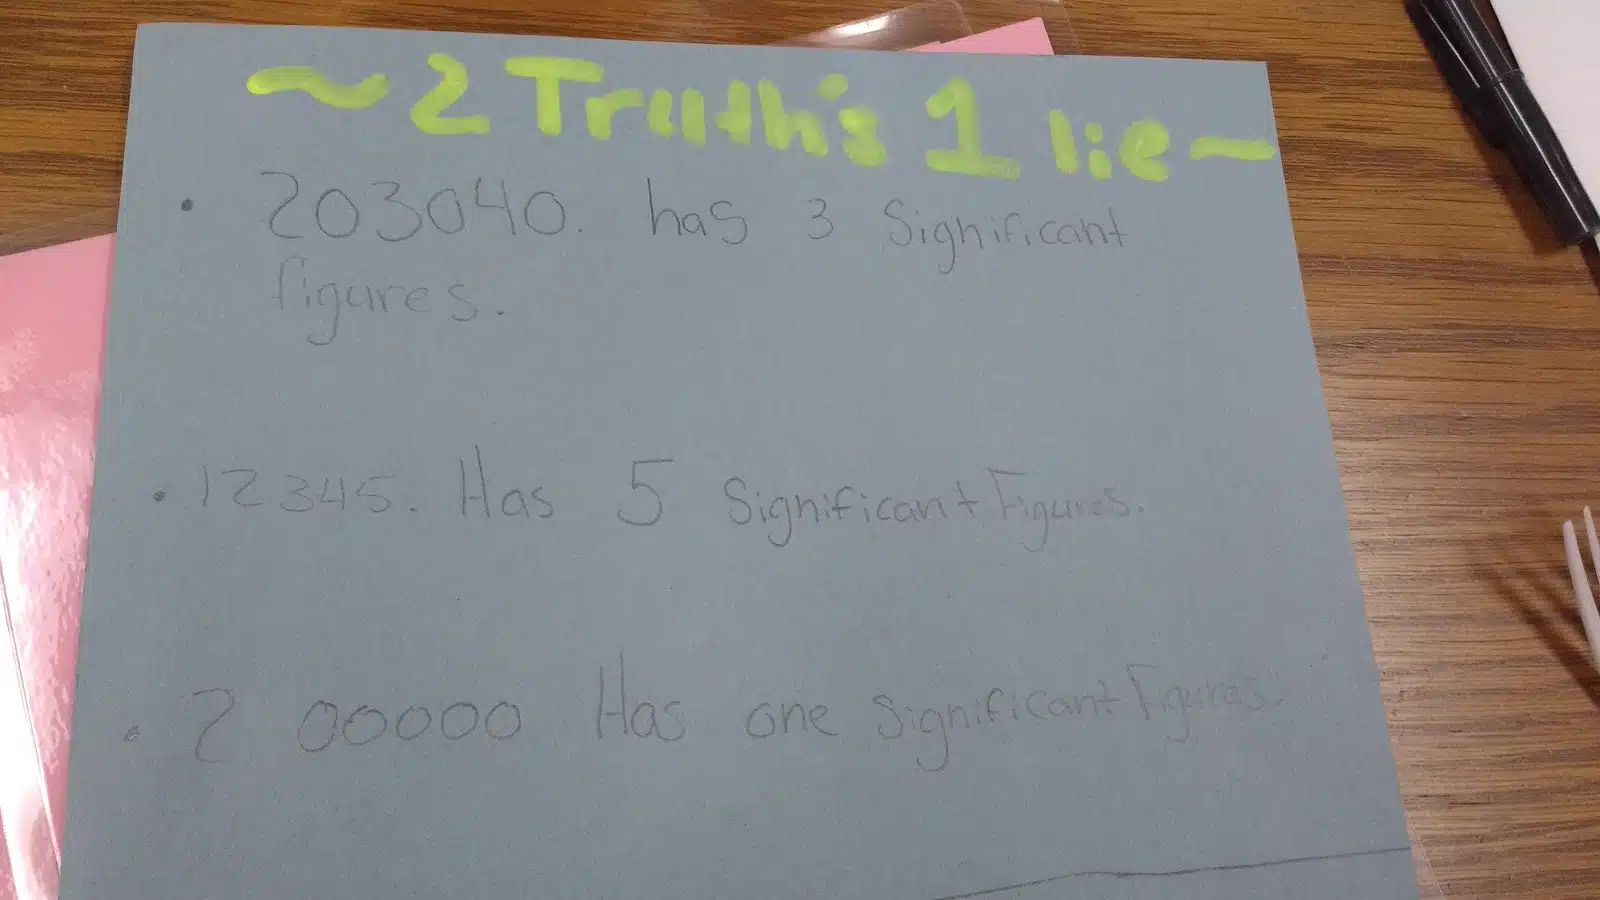 ~2 Truth's 1 lie~
• 203040. has 3 Significant
figures.
• 12345. Has 5 Significant Figures.
• 2 00000 Has one Significant Figures.